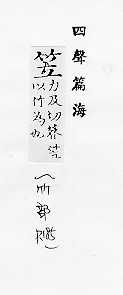 四聲篇海
笠 力及切簦笠
以竹為也
(竹部